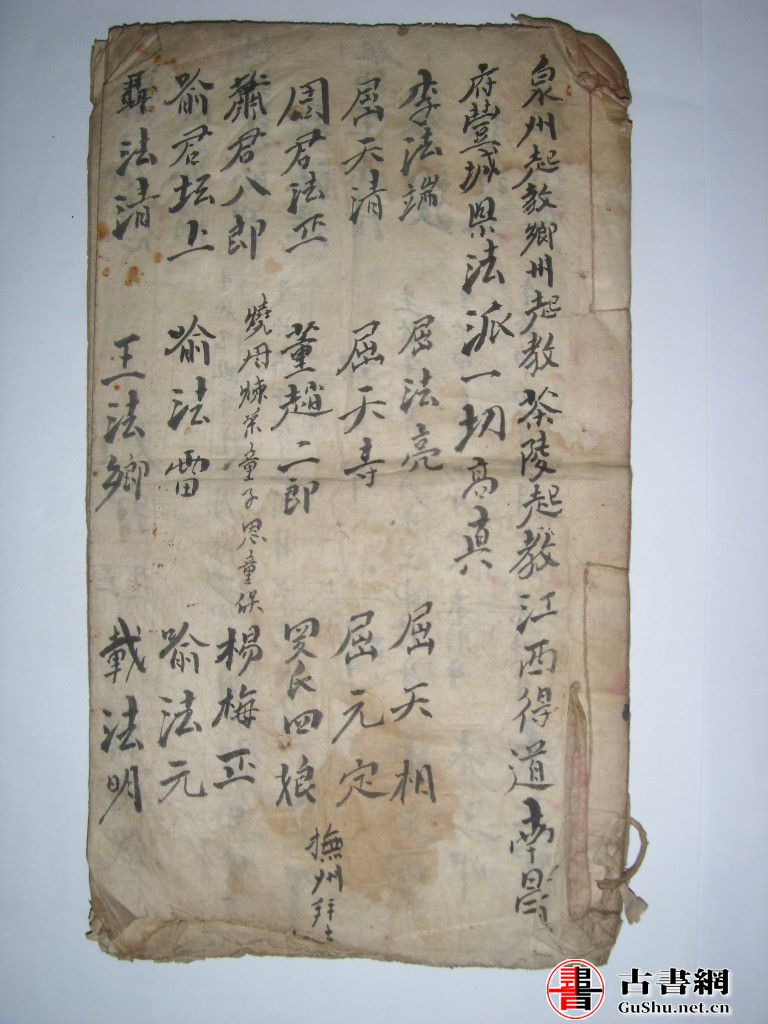 泉州起教鄉州起教茶陵起教江西得道南昌
府豐城県法派一切高真
李法端 屈法亮 屈天相
屈天清 屈天寿 屈元定
周君法 董趙二郎 四娘
撫州
蕭君八郎 楊梅
燒丹煉茶童子思童
喻君坛上 喻法雷 喻法元
聶法清 王法鄉 載法明
書 古書網
GuShu.net.cn